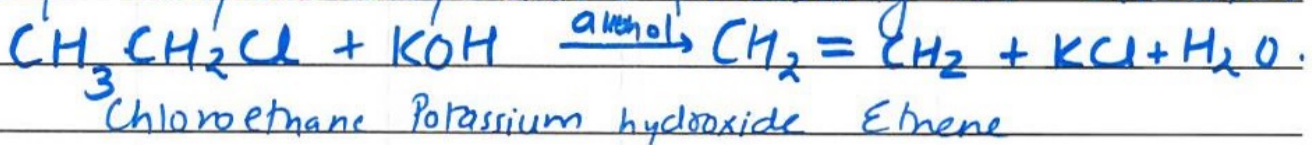 CH₃CH₂Cl + KOH —alcohol→ CH₂ = CH₂ + KCl + H₂O.
Chloroethane Potassium hydroxide Ethene